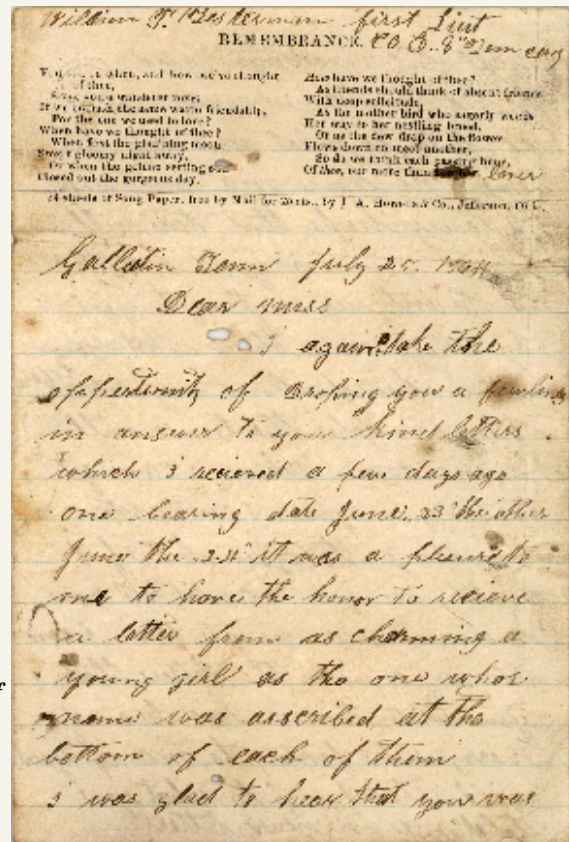 William F. Testerman first Liut
REMEMBRANCE. CO C. 8th Tenn cavy
of thee,
For the one we used to love?
When have we thought of thee?
When first the
Sweet gloomy night away,
Or when the setting sun
Closed out the gorgeous day.
How have we thought of thee?
As friends should think of absent friends
With deep solicitude,
As the mother bird who eagerly
Her way to her nestling brood,
Or as the dew drop on the flower
Flows down to meet another,
So do we think each passing hour,
Of thee, our more than lover
24 sheets of Song Paper, free by Mail for 20 cts., by J. A. & Co., Jefferson, O.
Gallatin Tenn July 25. 1864
Dear miss
I again take the
oppertunity of Droping you a fewlines
in answer to your kind letters
which I recieved a few days ago
one bearing date June, 23d the other
June the it was a pleasure to
me to have the honor to recieve
a letter from as charming a
young girl as the one whos
name was ascribed at the
bottom of each of them
I was glad to hear that you was